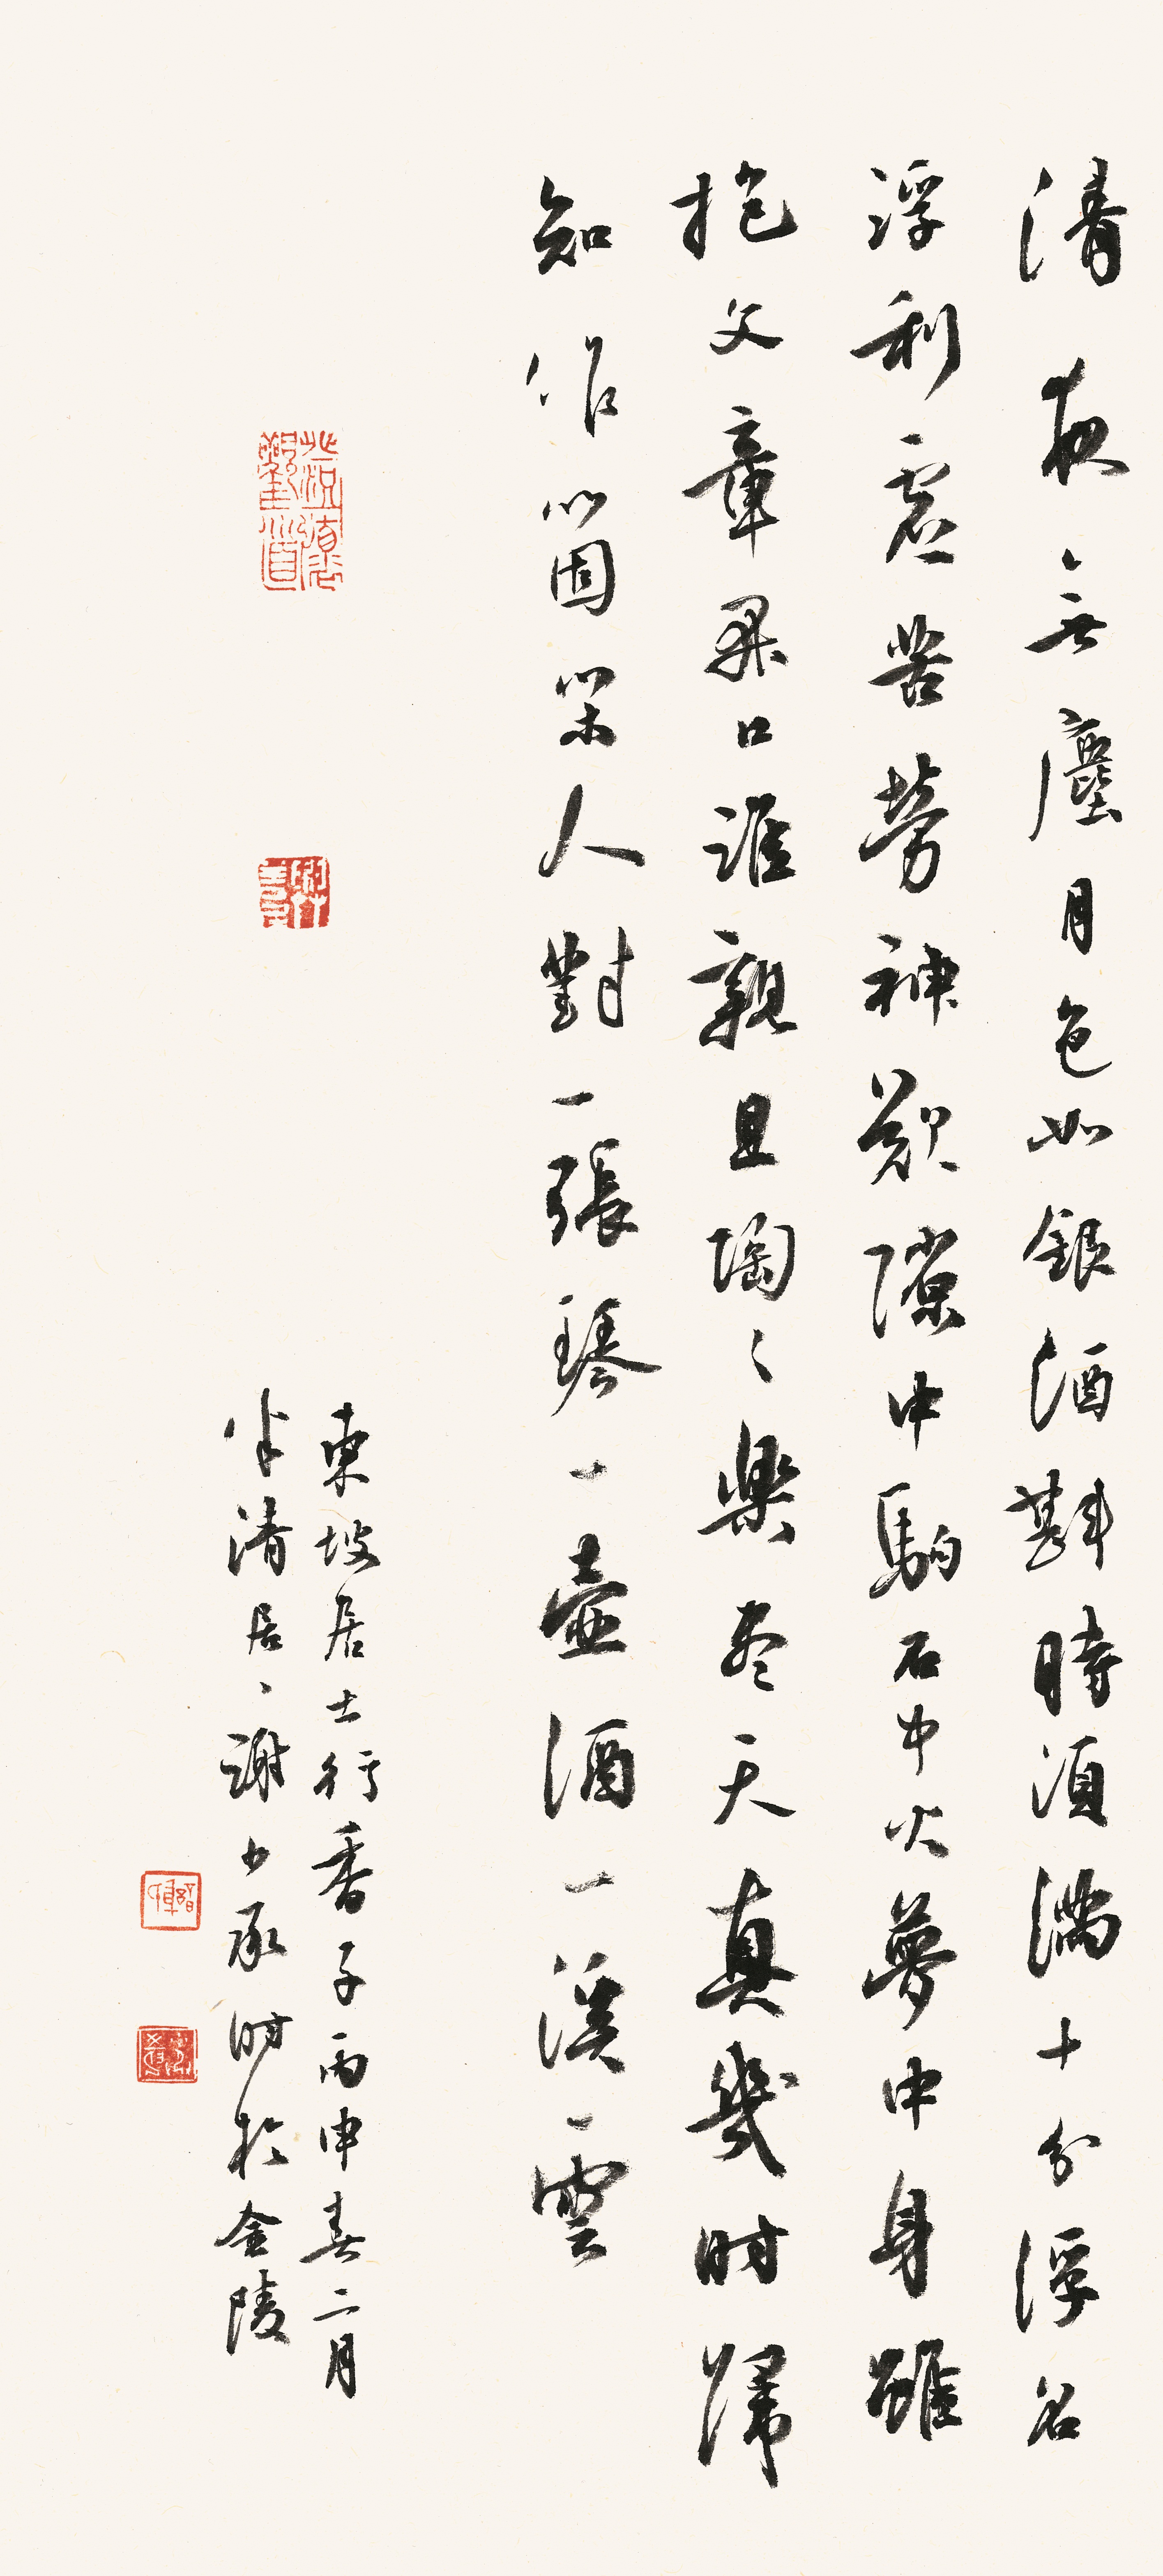 清夜無塵月色如銀酒斟時須滿十分浮名
浮利虛苦勞神歎隙中駒石中火夢中身雖
抱文章開口誰親且陶々樂尽天真幾时歸
知作箇閑人對一張琴一壺酒一溪雲
東坡居士行香子丙申春二月
半清居、謝少承时於金陵